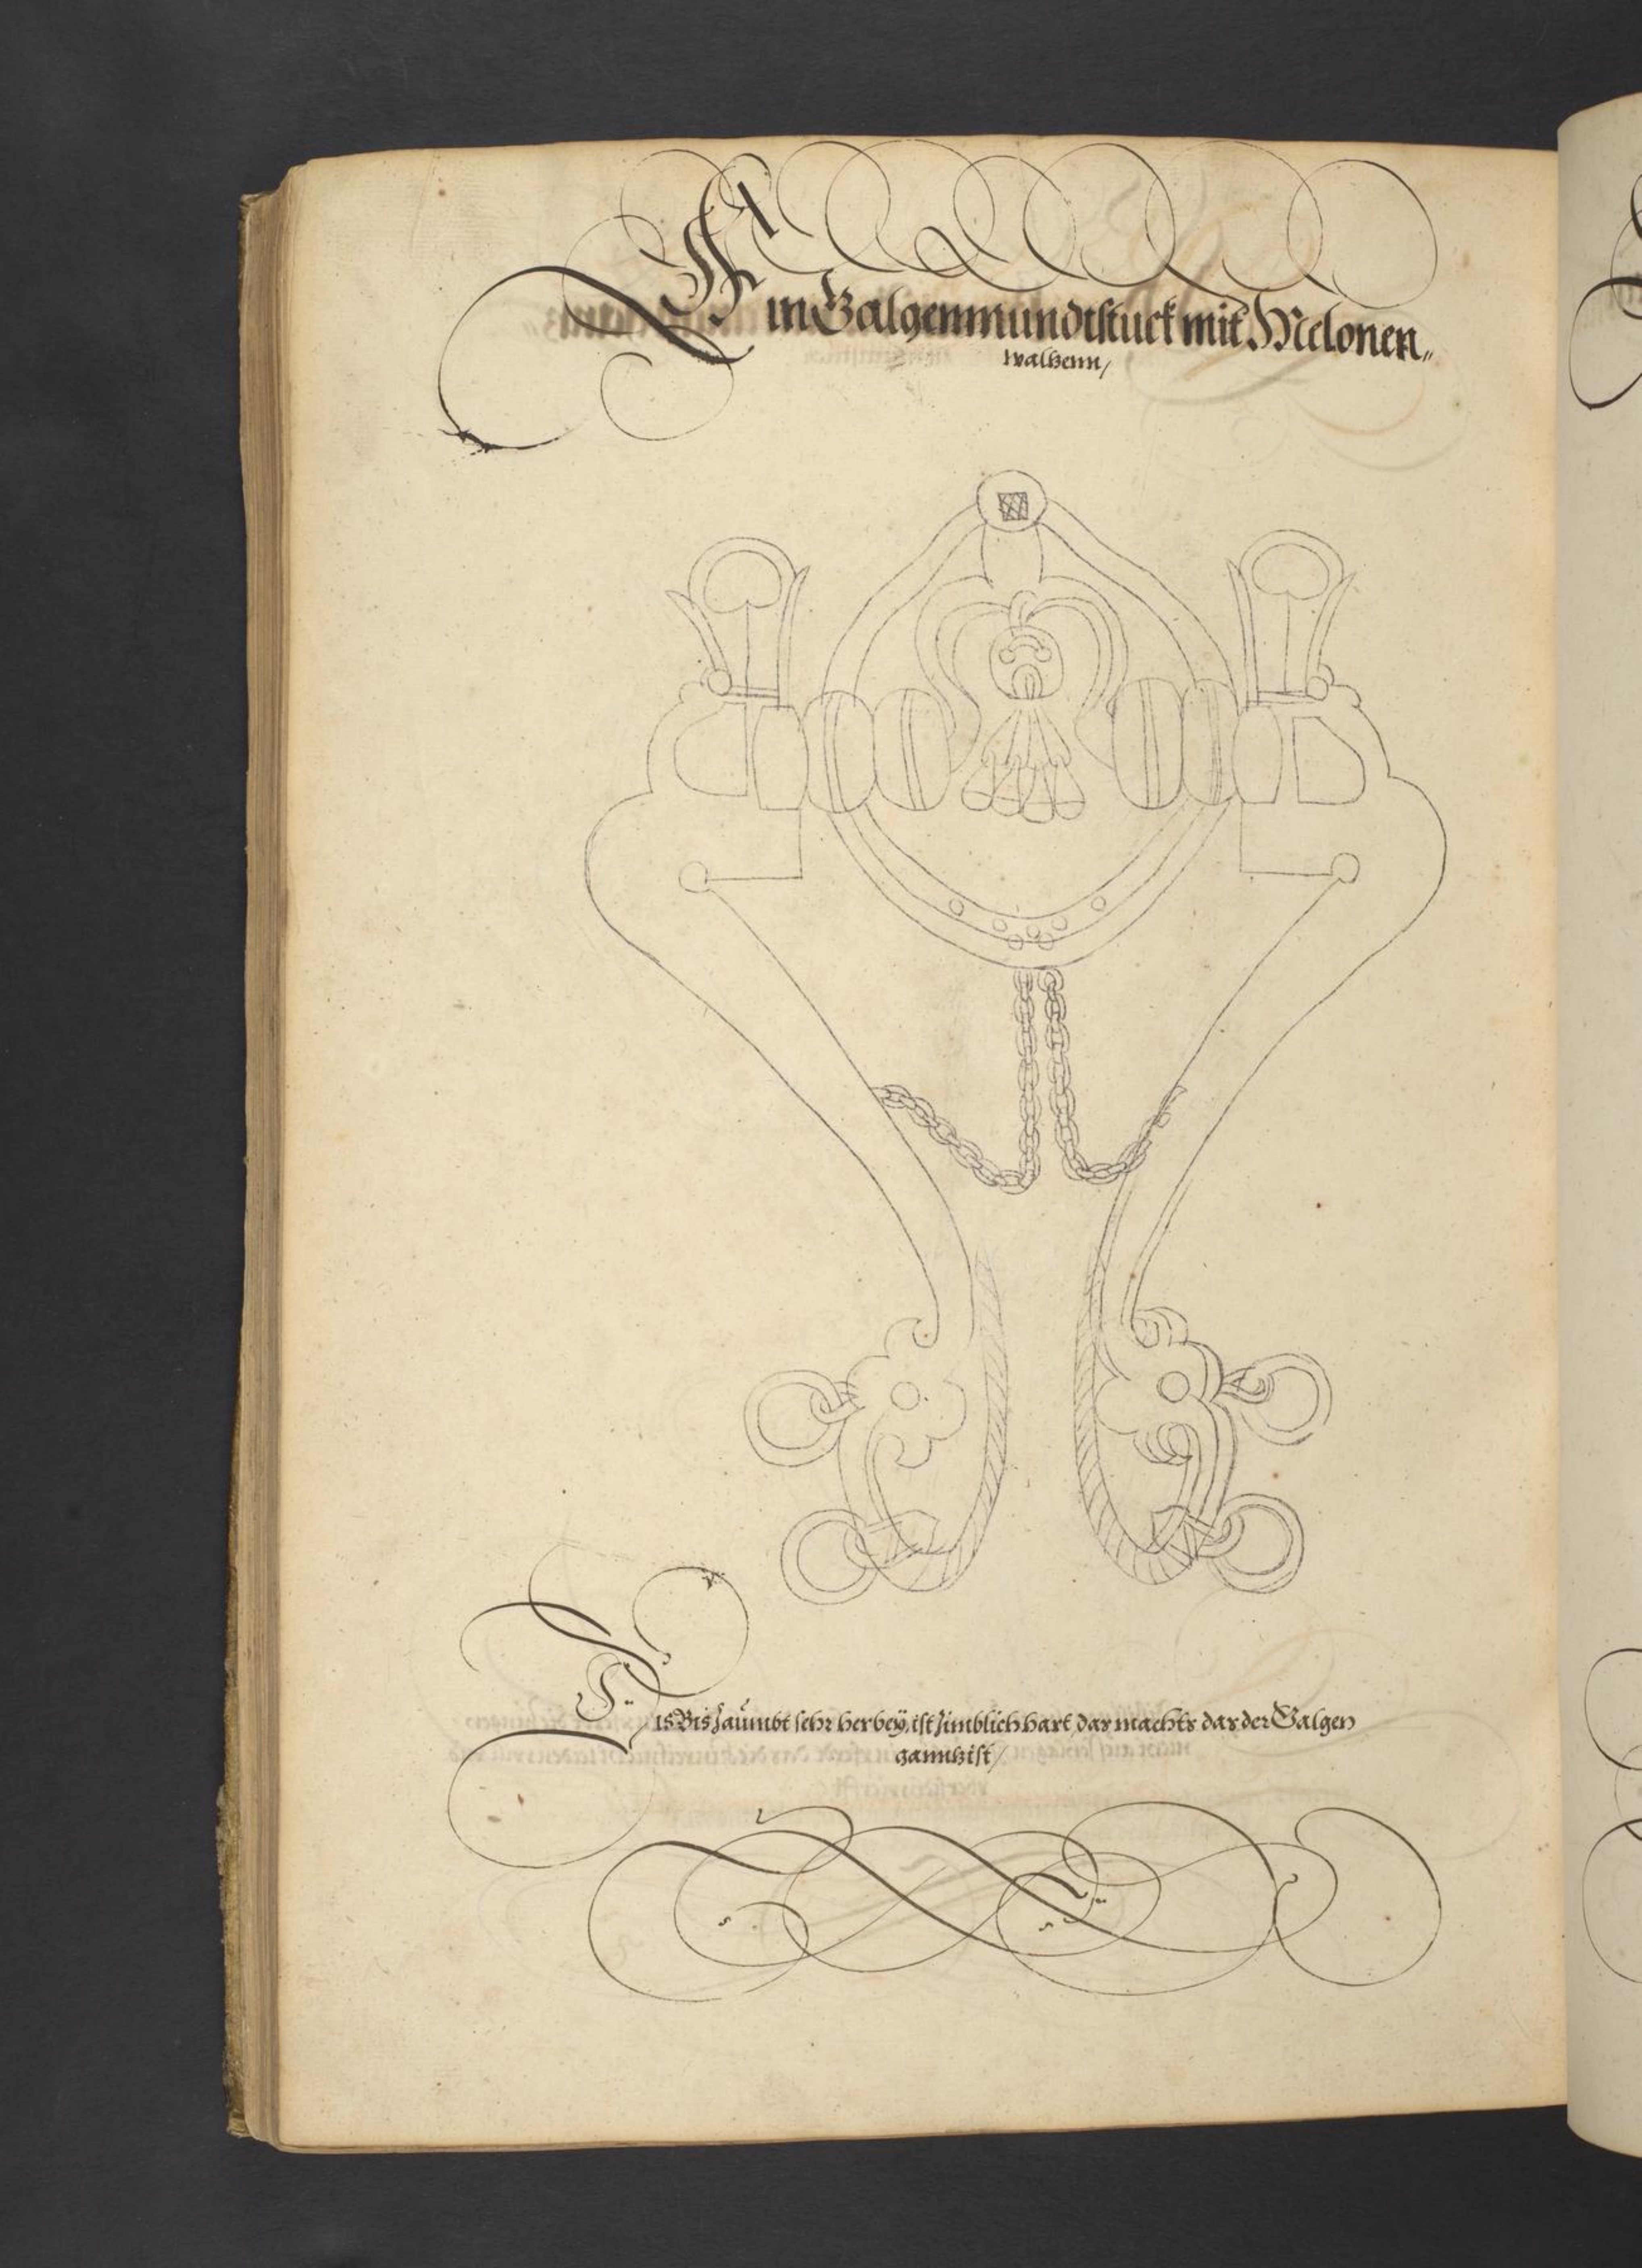 Ein Galgenmundtstuck mit Melonen„
waltzenn/
Dis Bis zäumbt sehr herbeÿ, ist zimblich hart, das machts das der Galgen
ganntz ist/